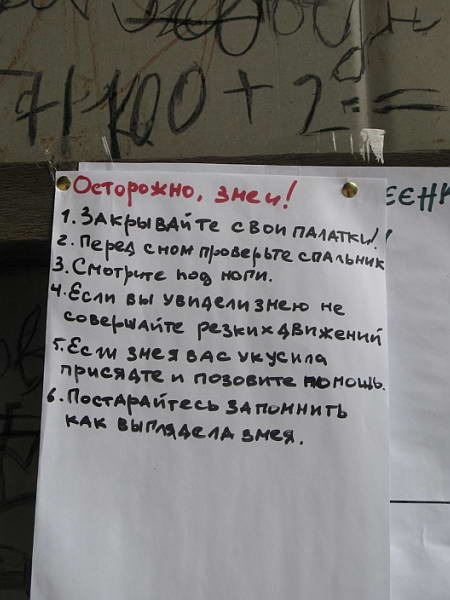 71100 + 2 =
Осторожно, змеи!
1. ЗАКРЫВАЙТЕ СВОИ ПАЛАТКИ!
2. Перед сном проверьте спальник
3. Смотрите под ноги.
4. Если вы увидели змею не
совершайте резких движений
5. Если змея вас укусила
присядте и позовите помощь.
6. Постарайтесь запомнить
как выглядела змея.